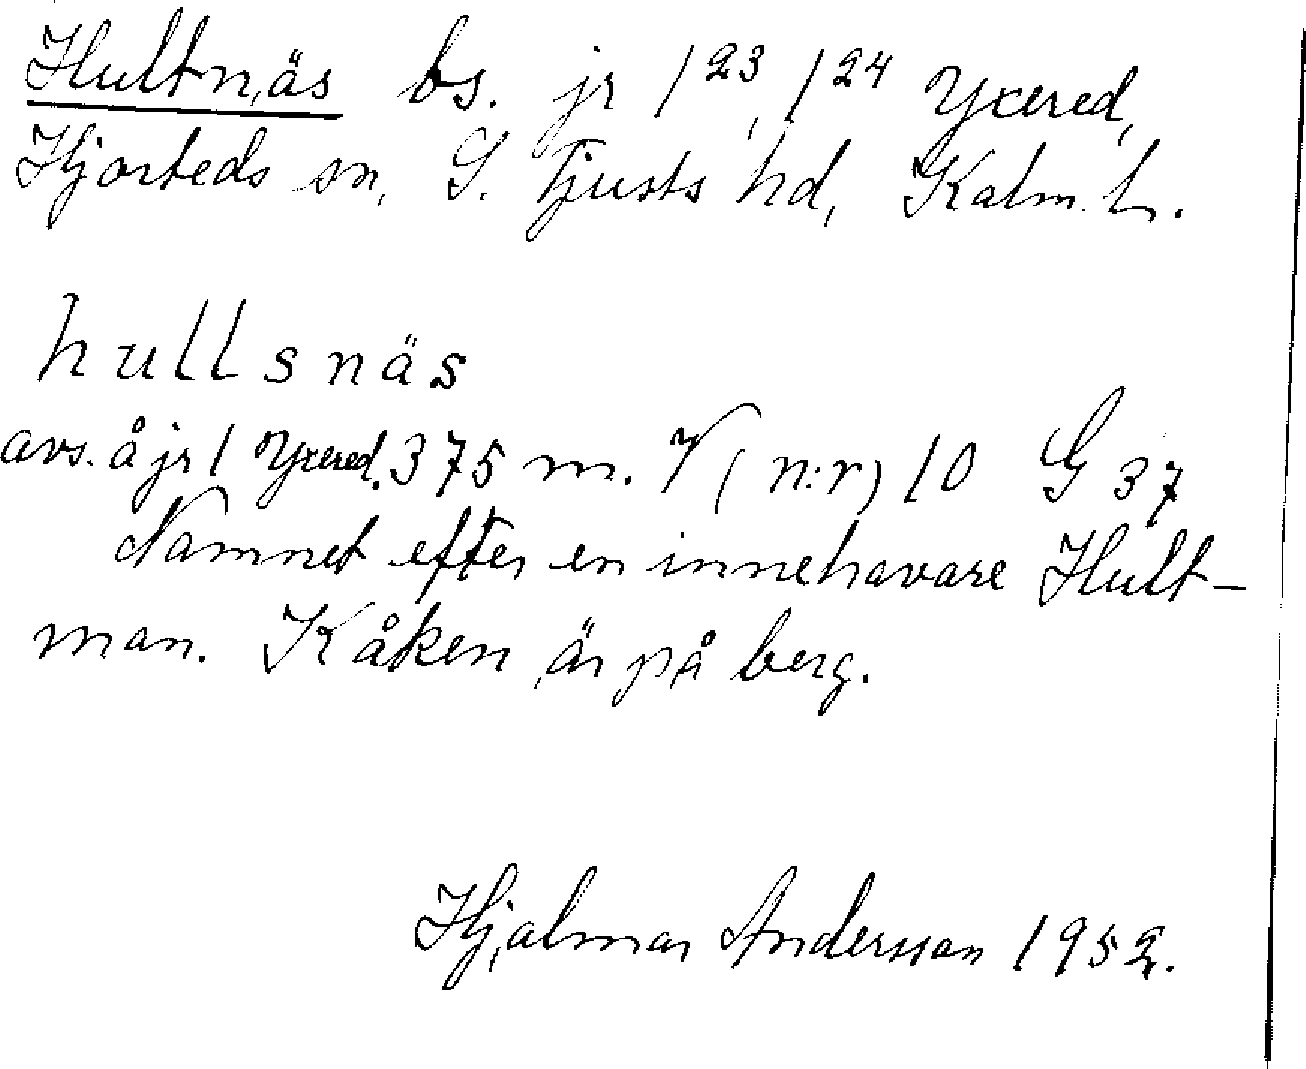 Hultnäs bs. jr 1²³, 1²⁴ Yxered,
Hjorteds sn, S. Tjusts hd, Kalm. l.
hullsnäs
avs. å jr 1 Yxered. 375 m. V (n:r) 10 G 37
Namnet efter en innehavare Hult-
man. Kåken är på berg.
Hjalmar Andersson 1952.